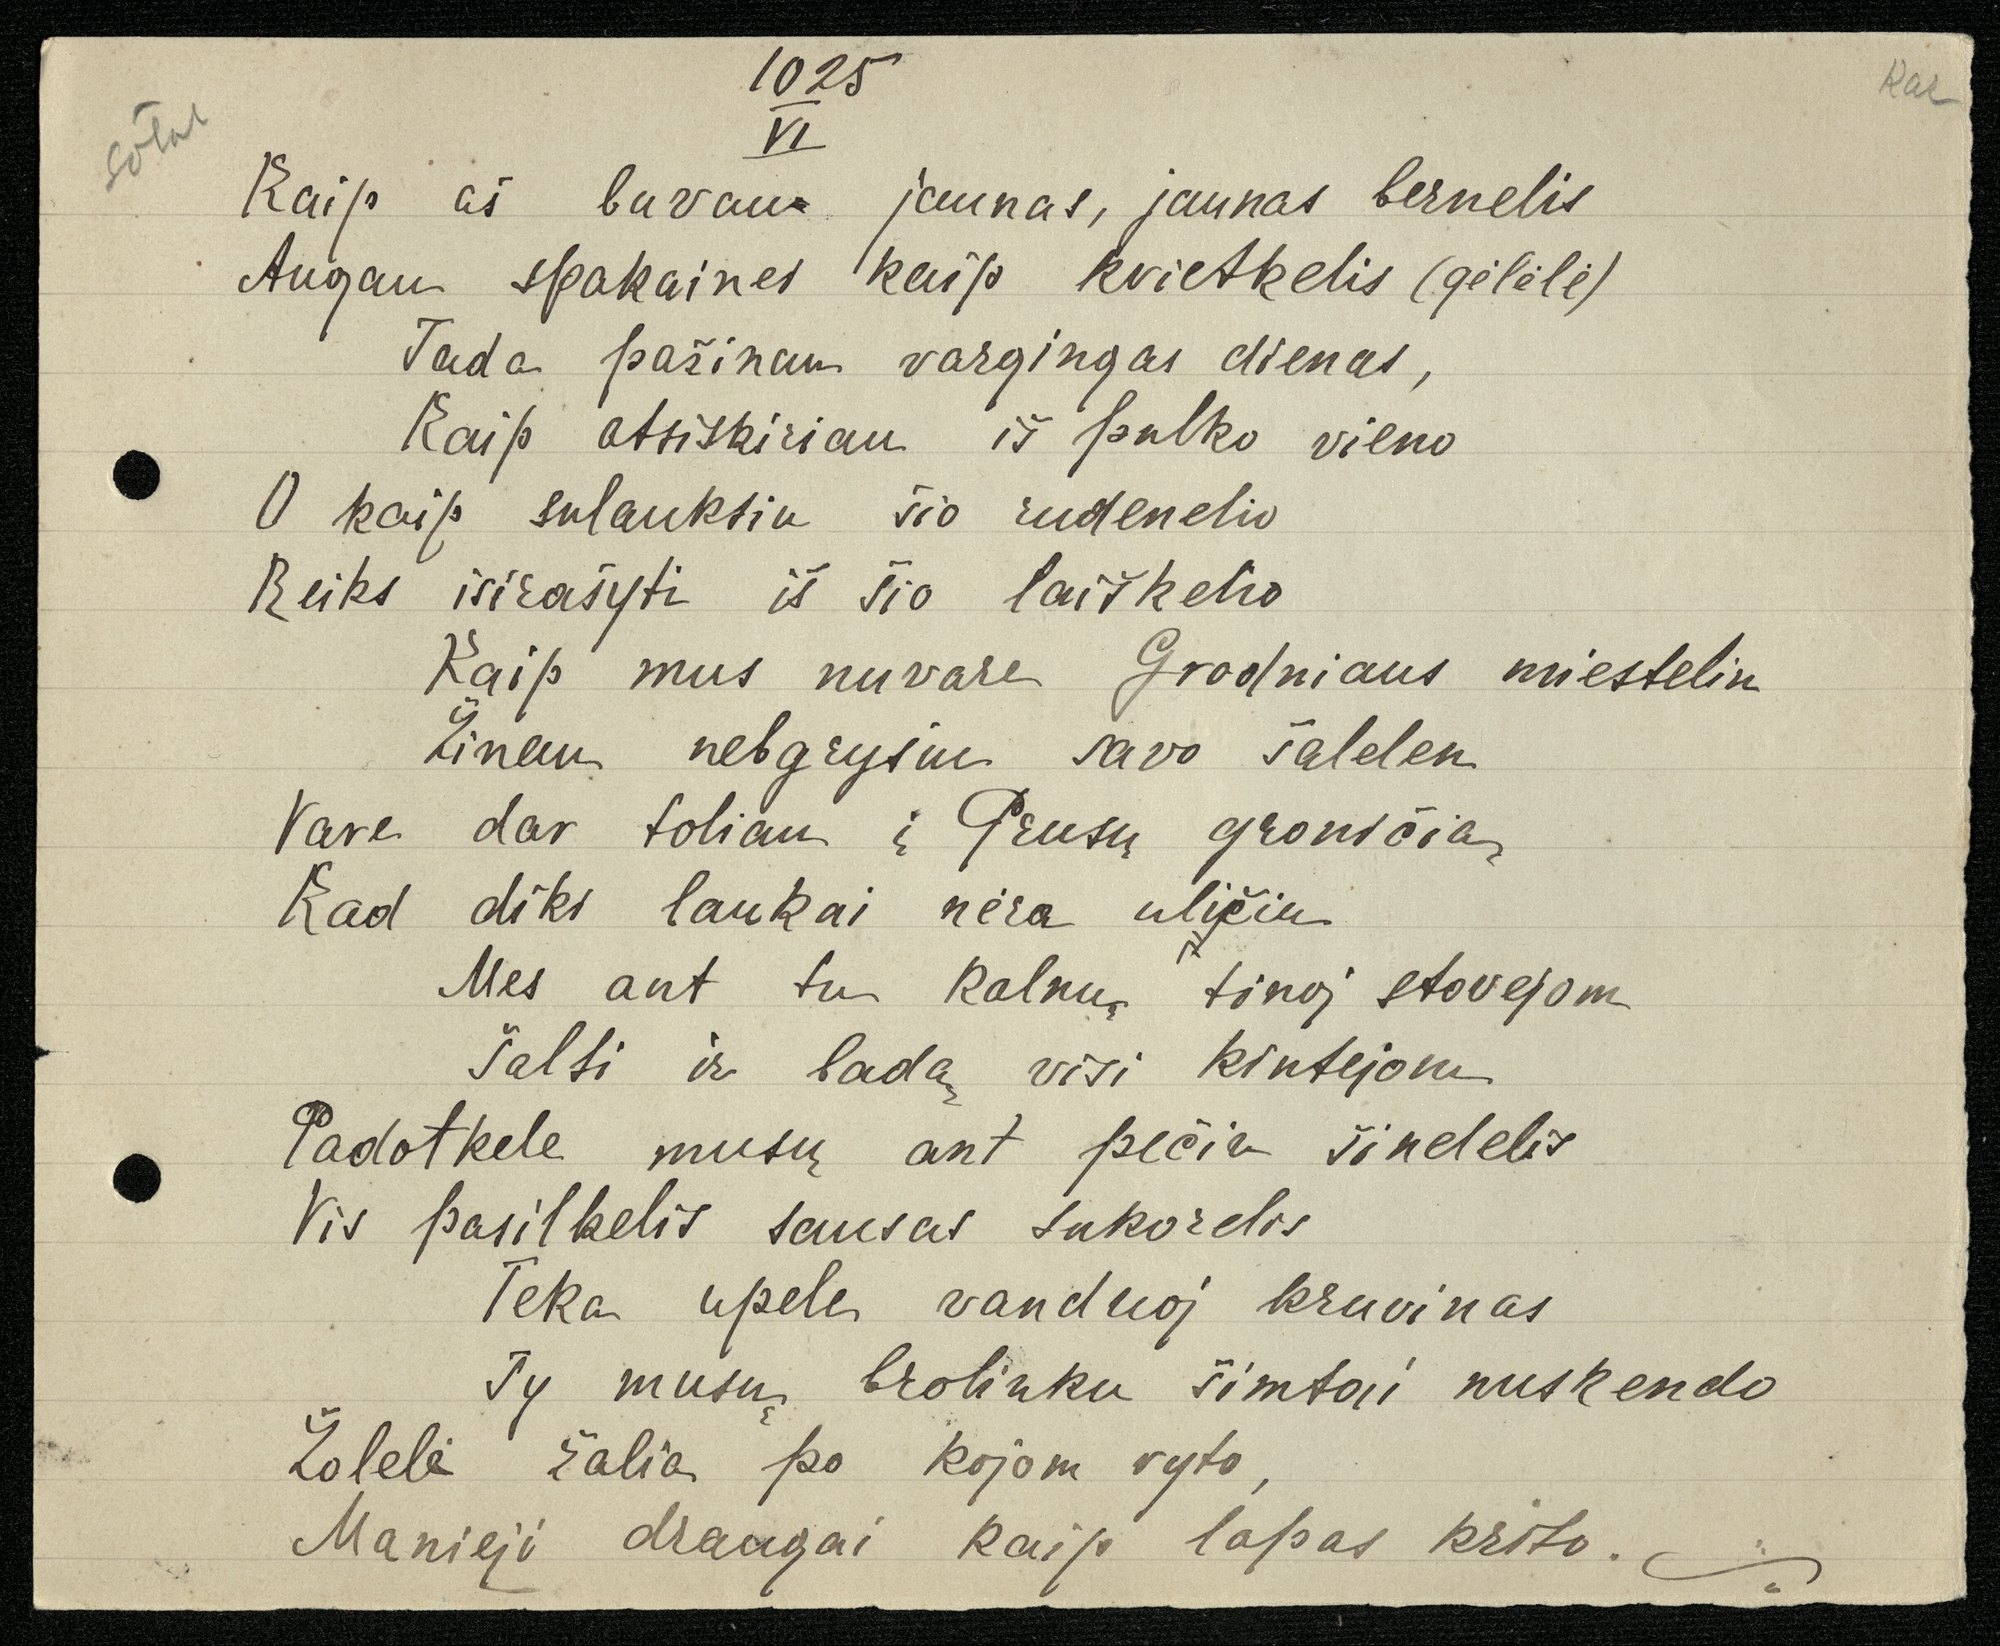 1025
VI
Kar
Kaip aš buvau jaunas, jaunas bernelis
Augau spakaines kaip kvietkelis (gėlėlė)
Tada pažinau vargingas dienas,
Kaip atsiskiriau iš pulko vieno
O kaip sulauksiu šio rudenelio
Reiks iširašyti iš šio laiškelio
Kaip mus nuvare Grodniaus miestelin
Žinau nebgryšiu savo šalelen
Vare dar toliau į Prusų groničią
Kad diks laukai nėra uličiu
Mes ant tu kalnų tinoj stovejom
Šalti ir badą visi kintejom
Padotkele musų ant pečiu šinelelis
Vis pasilkelis sausas sukorelis
Teka upele vanduoj kruvinas
Ty musų brolinku šimtai nuskendo
Žolelė žalia po kojom vyto,
Manieji draugai kaip lapas krito.